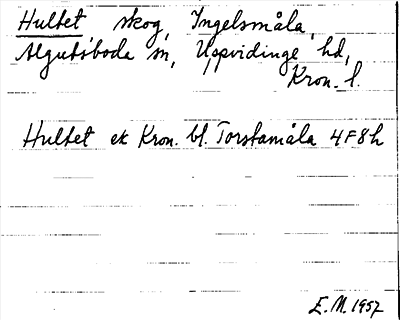 Hultet skog, Ingelsmåla,
Algutsboda sn, Uppvidinge hd,
Kron. l.
Hultet ek Kron. bl. Torstamåla 4F8h
E.M. 1957